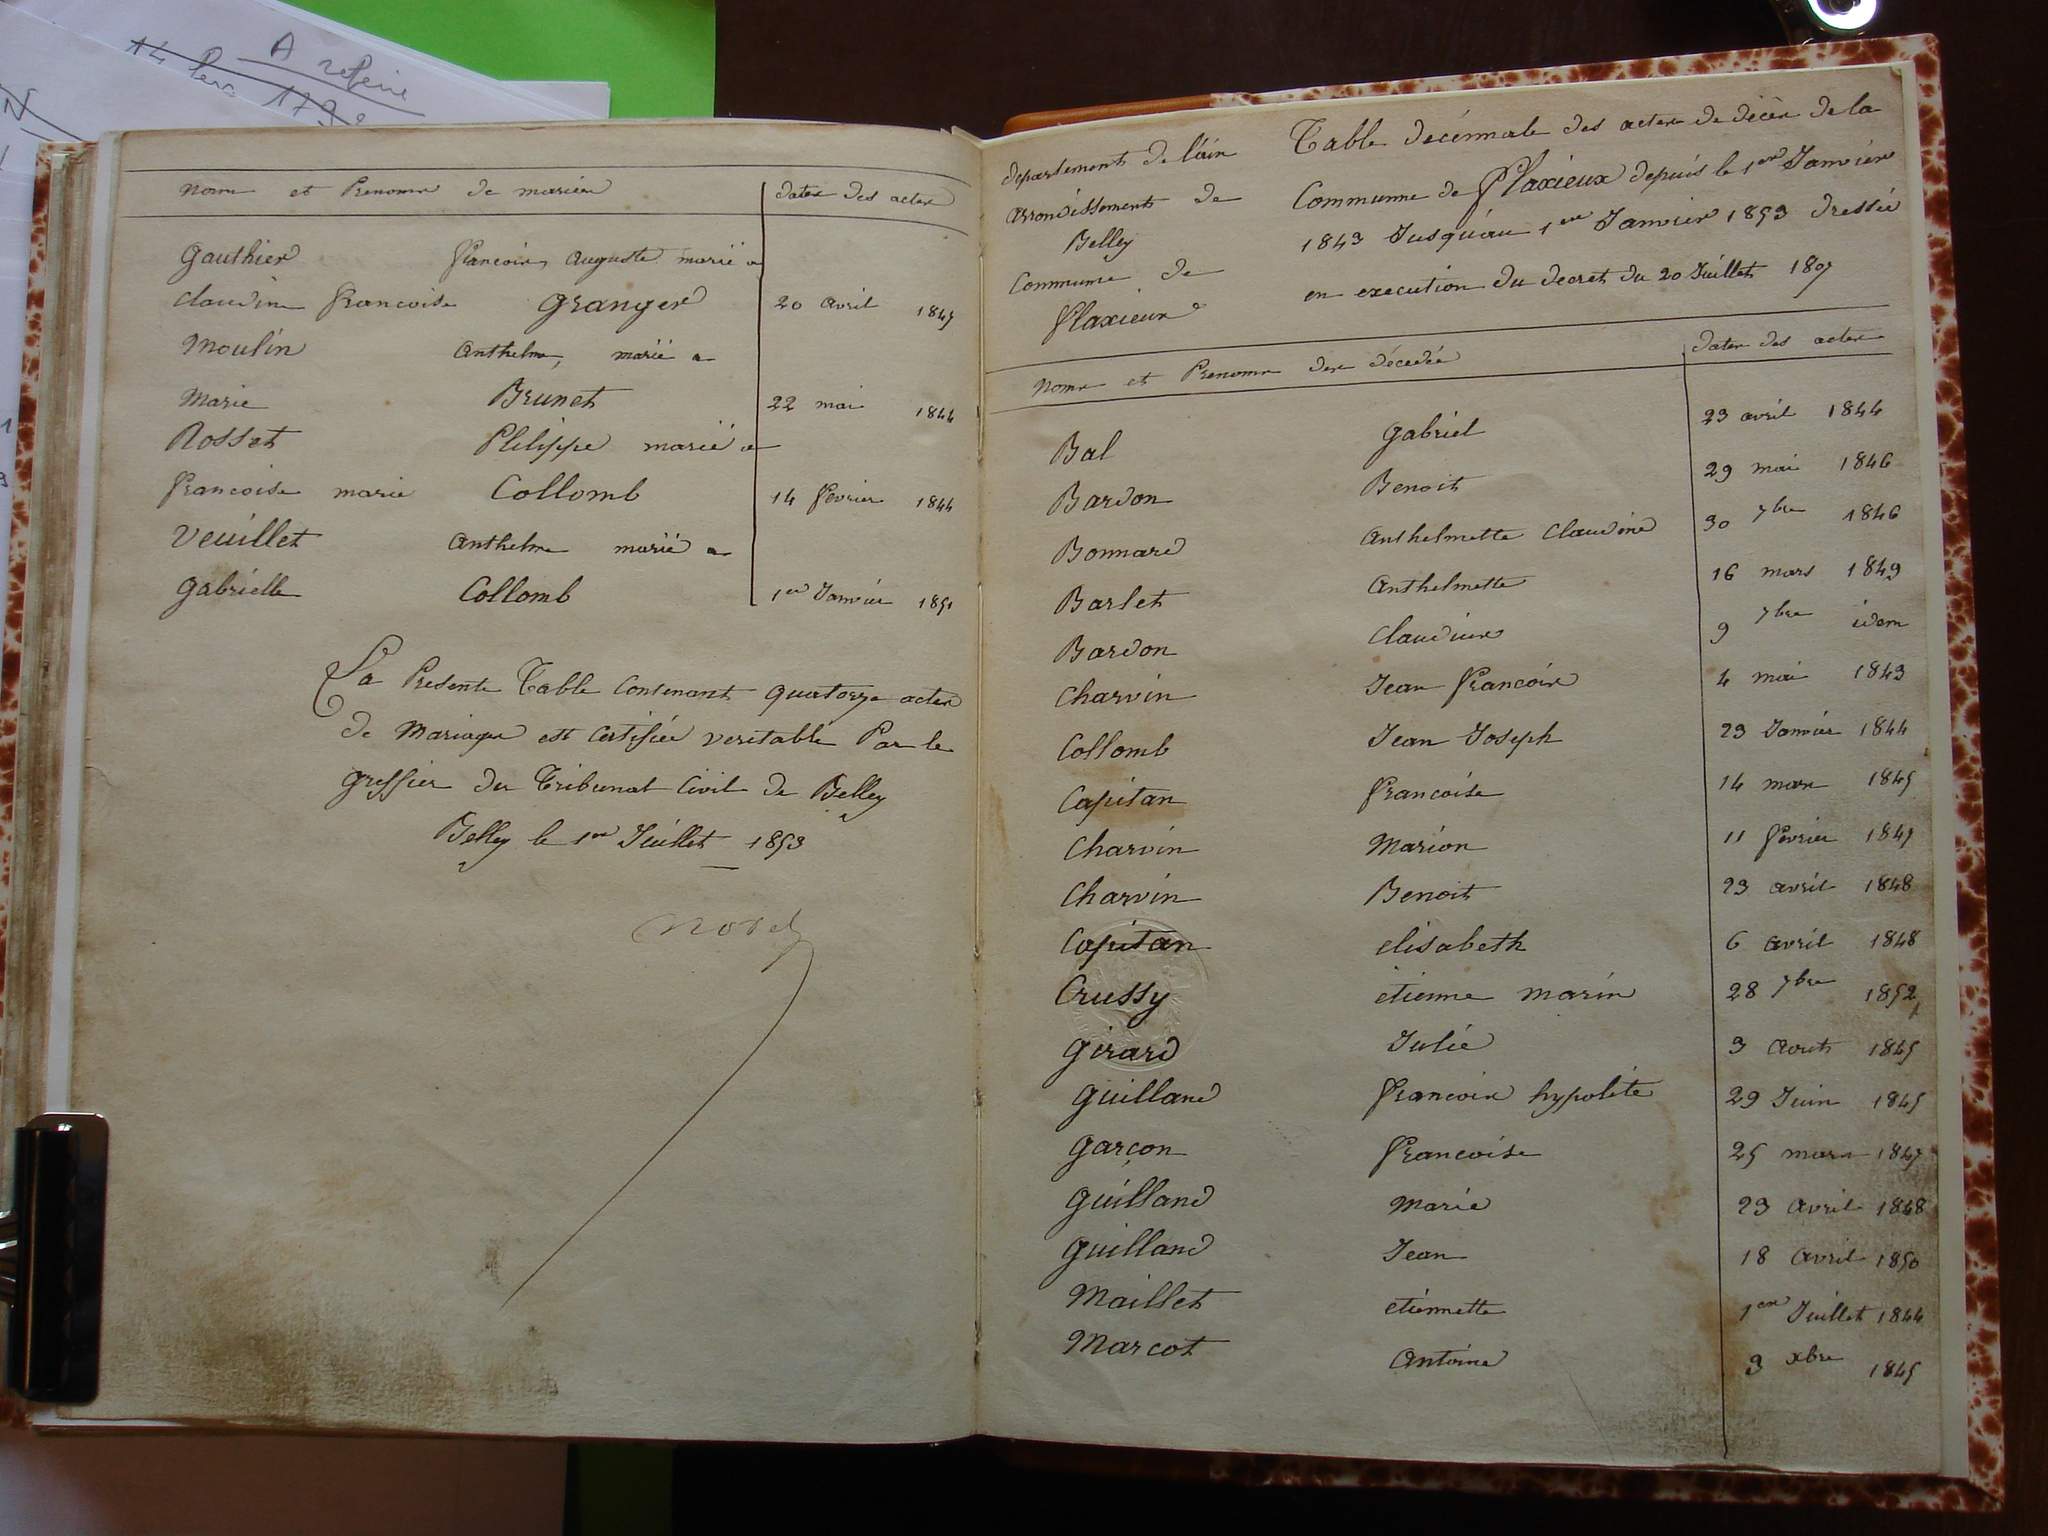 A refaire
Noms et Prenoms de mariés
dates des actes
Gauthier francois, auguste marié a
claudine francoise Granger 20 avril 1845
Moulin anthelme, marié a
Marie Brunet 22 mai 1844
Rosset Philippe marié a
francoise marie Collomb 14 fevrier 1844
Veuillet anthelme marié a
gabrielle Collomb 1er Janvier 1851
La Presente Table Contenant quatorze actes
de Mariages est Certifiée veritable Par le
greffier du Tribunal Civil de Belley
Belley le 1er Juillet 1853
departement de l'ain
arrondissement de
Belley
Commune de
flaxieux
Table decennale des actes de décès de la
Commune de flaxieux depuis le 1er Janvier
1843 Jusqu'au 1er Janvier 1853 dressée
en execution du decret du 20 Juillet 1807
Noms et Prenoms des décédés dates des actes
Bal gabriel 23 avril 1844
Bardon Benoit 29 mai 1846
Bonnard anthelmette Claudine 30 7bre 1846
Barlet anthelmette 16 mars 1849
Bardon Claudine 9 7bre idem
Charvin Jean francois 4 mai 1843
Collomb Jean Joseph 23 Janvier 1844
Capitan francoise 14 mars 1845
Charvin Marion 11 fevrier 1847
Charvin Benoit 23 avril 1848
Capitan elisabeth 6 avril 1848
Crussy etienne marin 28 7bre 1852
Girard Julie 3 aout 1845
Guilland francois hypolite 29 Juin 1845
Garçon francoise 25 mars 1847
Guilland Marie 23 avril 1848
Guilland Jean 18 avril 1850
Maillet etiennette 1er Juillet 1844
Marcot antoine 3 xbre 1845